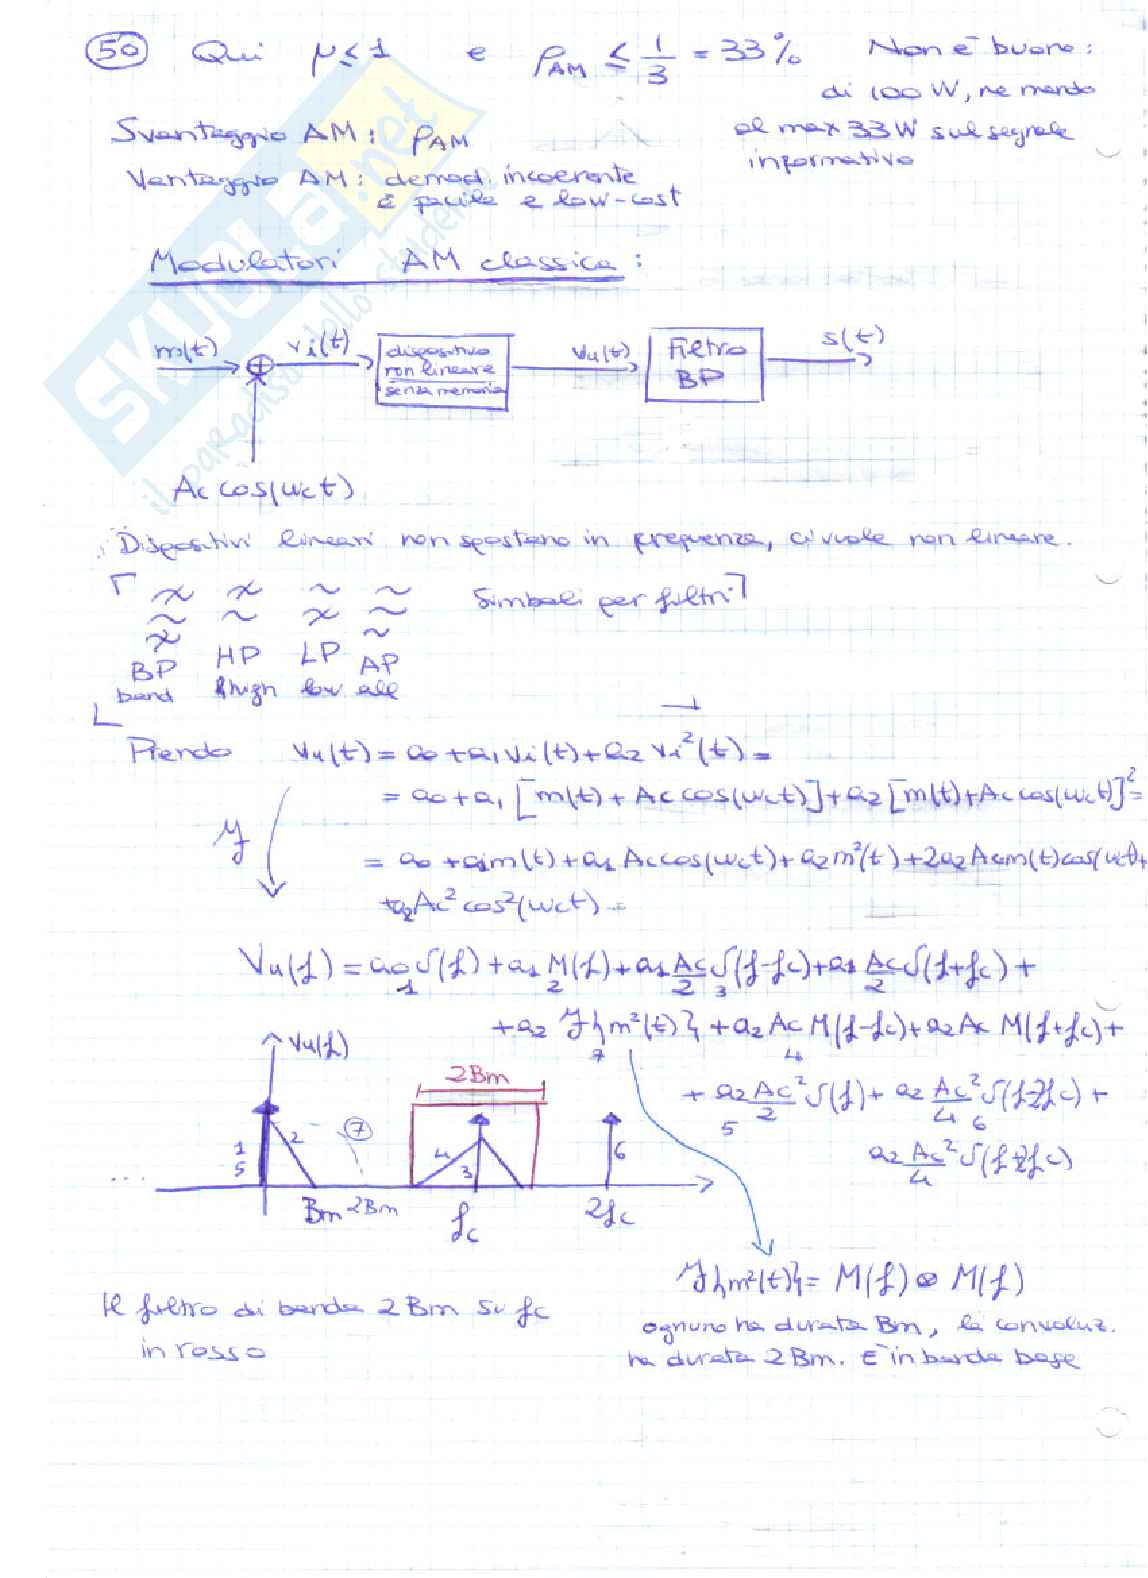 50 Qui μ≤1 e ρAM ≤ 1/3 = 33% Non è buono:
di 100 W, ne mando
al max 33W sul segnale
informativo
Svantaggio AM: ρAM
Vantaggio AM: demod. incoerente
è facile e low-cost
Modulatori AM classica:
m(t) + vi(t) dispositivo non lineare senza memoria vu(t) Filtro BP s(t)
Ac cos(ωct)
Dispositivi lineari non spostano in frequenza, ci vuole non lineare.
Simboli per filtri
BP HP LP AP
band high low all
Prendo vu(t) = a0 + a1 vi(t) + a2 vi²(t) =
= a0 + a1 [m(t) + Ac cos(ωct)] + a2 [m(t) + Ac cos(ωct)]² =
= a0 + a1m(t) + a1 Ac cos(ωct) + a2m²(t) + 2a2 Acm(t)cos(ωct)+
+a2Ac² cos²(ωct) =
Vu(f) = a0 δ(f) + a1 M(f) + a1 Ac/2 δ(f-fc) + a1 Ac/2 δ(f+fc) +
1 2 3
+a2 ℱ{m²(t)} + a2 Ac M(f-fc) + a2 Ac M(f+fc) +
7 4
+ a2 Ac²/2 δ(f) + a2 Ac²/4 δ(f-2fc) +
5 6
a2 Ac²/4 δ(f+2fc)
Vu(f)
2Bm
1 5 2 7 4 3 6
...
Bm 2Bm fc 2fc
ℱ{m²(t)} = M(f) ⊗ M(f)
ognuno ha durata Bm, la convoluz.
ha durata 2Bm. È in banda base
Il filtro di banda 2Bm su fc
in rosso
SKUOLA.net
il paradiso dello studente